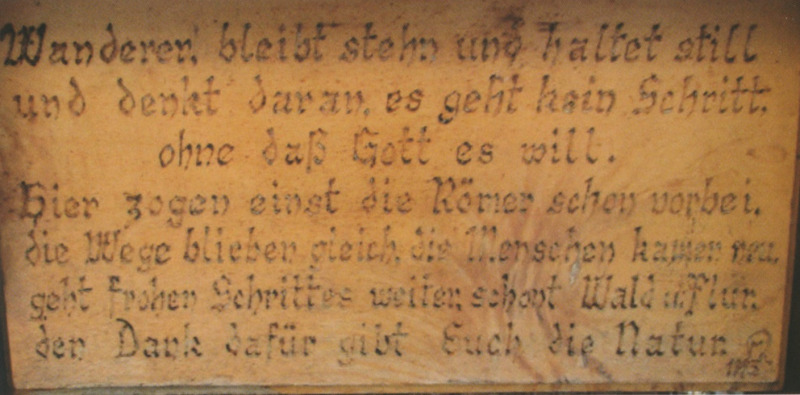 Wanderer, bleibt stehn und haltet still
und denkt daran, es geht kein Schritt,
ohne daß Gott es will.
Hier zogen einst die Römer schon vorbei,
die Wege blieben gleich, die Menschen kamen neu,
geht frohen Schrittes weiter, schont Wald u. Flur
den Dank dafür gibt Euch die Natur